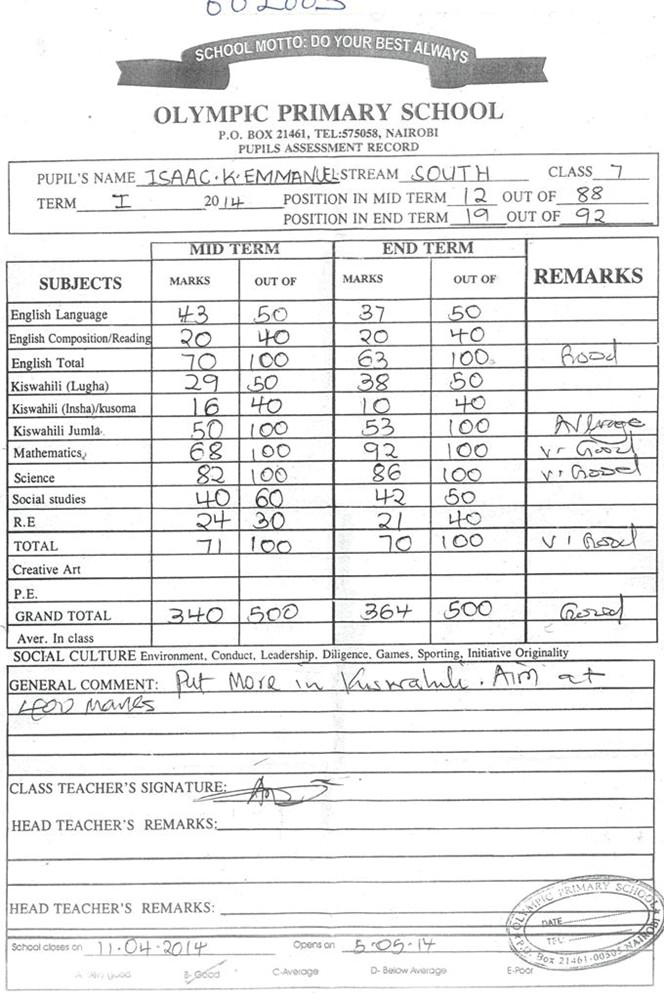 002003
SCHOOL MOTTO: DO YOUR BEST ALWAYS
OLYMPIC PRIMARY SCHOOL
P.O. BOX 21461, TEL:575058, NAIROBI
PUPILS ASSESSMENT RECORD
PUPIL'S NAME ISAAC.K.EMMANUEL STREAM SOUTH CLASS 7
TERM I 2014 POSITION IN MID TERM 12 OUT OF 88
POSITION IN END TERM 19 OUT OF 92
MID TERM END TERM
SUBJECTS MARKS OUT OF MARKS OUT OF REMARKS
English Language 43 50 37 50
English Composition/Reading 20 40 20 40
English Total 70 100 63 100 Good
Kiswahili (Lugha) 29 50 38 50
Kiswahili (Insha)/kusoma 16 40 10 40
Kiswahili Jumla 50 100 53 100 Average
Mathematics 68 100 92 100 V. Good
Science 82 100 86 100 V. Good
Social studies 40 60 42 50
R.E 24 30 21 40
TOTAL 71 100 70 100 V. Good
Creative Art
P.E.
GRAND TOTAL 340 500 364 500 Good
Aver. In class
SOCIAL CULTURE Environment, Conduct, Leadership, Diligence, Games, Sporting, Initiative Originality
GENERAL COMMENT: Put More in Kiswahili. Aim at
400 marks
CLASS TEACHER'S SIGNATURE:
HEAD TEACHER'S REMARKS:
HEAD TEACHER'S REMARKS:
OLYMPIC PRIMARY SCHOOL
DATE
TEL:
P.O. Box 21461-00505 NAIROBI
School closes on 11.04.2014 Opens on 5.05.14
A- Very Good B- Good C-Average D- Below Average E-Poor